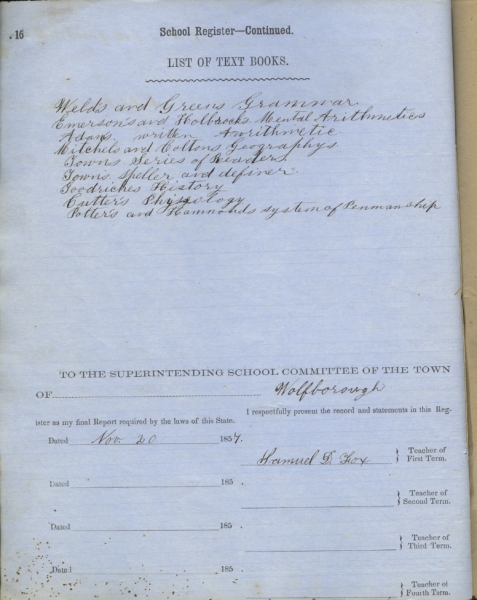 . 16
School Register—Continued.
LIST OF TEXT BOOKS.
Welds and Greens Grammar
Emersons and Holbrocks Mental Arithmetics
Adams written Awrithmetic
Mitchels and Coltons Geographys
Towns Series of Readers
Towns Speller and definer
Goodriches History
Cutter's Physology
Potter's and Hammonds system of Penmanship
TO THE SUPERINTENDING SCHOOL COMMITTEE OF THE TOWN
OF Wolfborough
I respectfully present the record and statements in this Reg-
ister as my final Report required by the laws of this State.
Dated Nov. 20 1857.
Samuel D. Fox Teacher of First Term.
Dated 185 .
Teacher of Second Term.
Dated 185 .
Teacher of Third Term.
Dated 185 .
Teacher of Fourth Term.